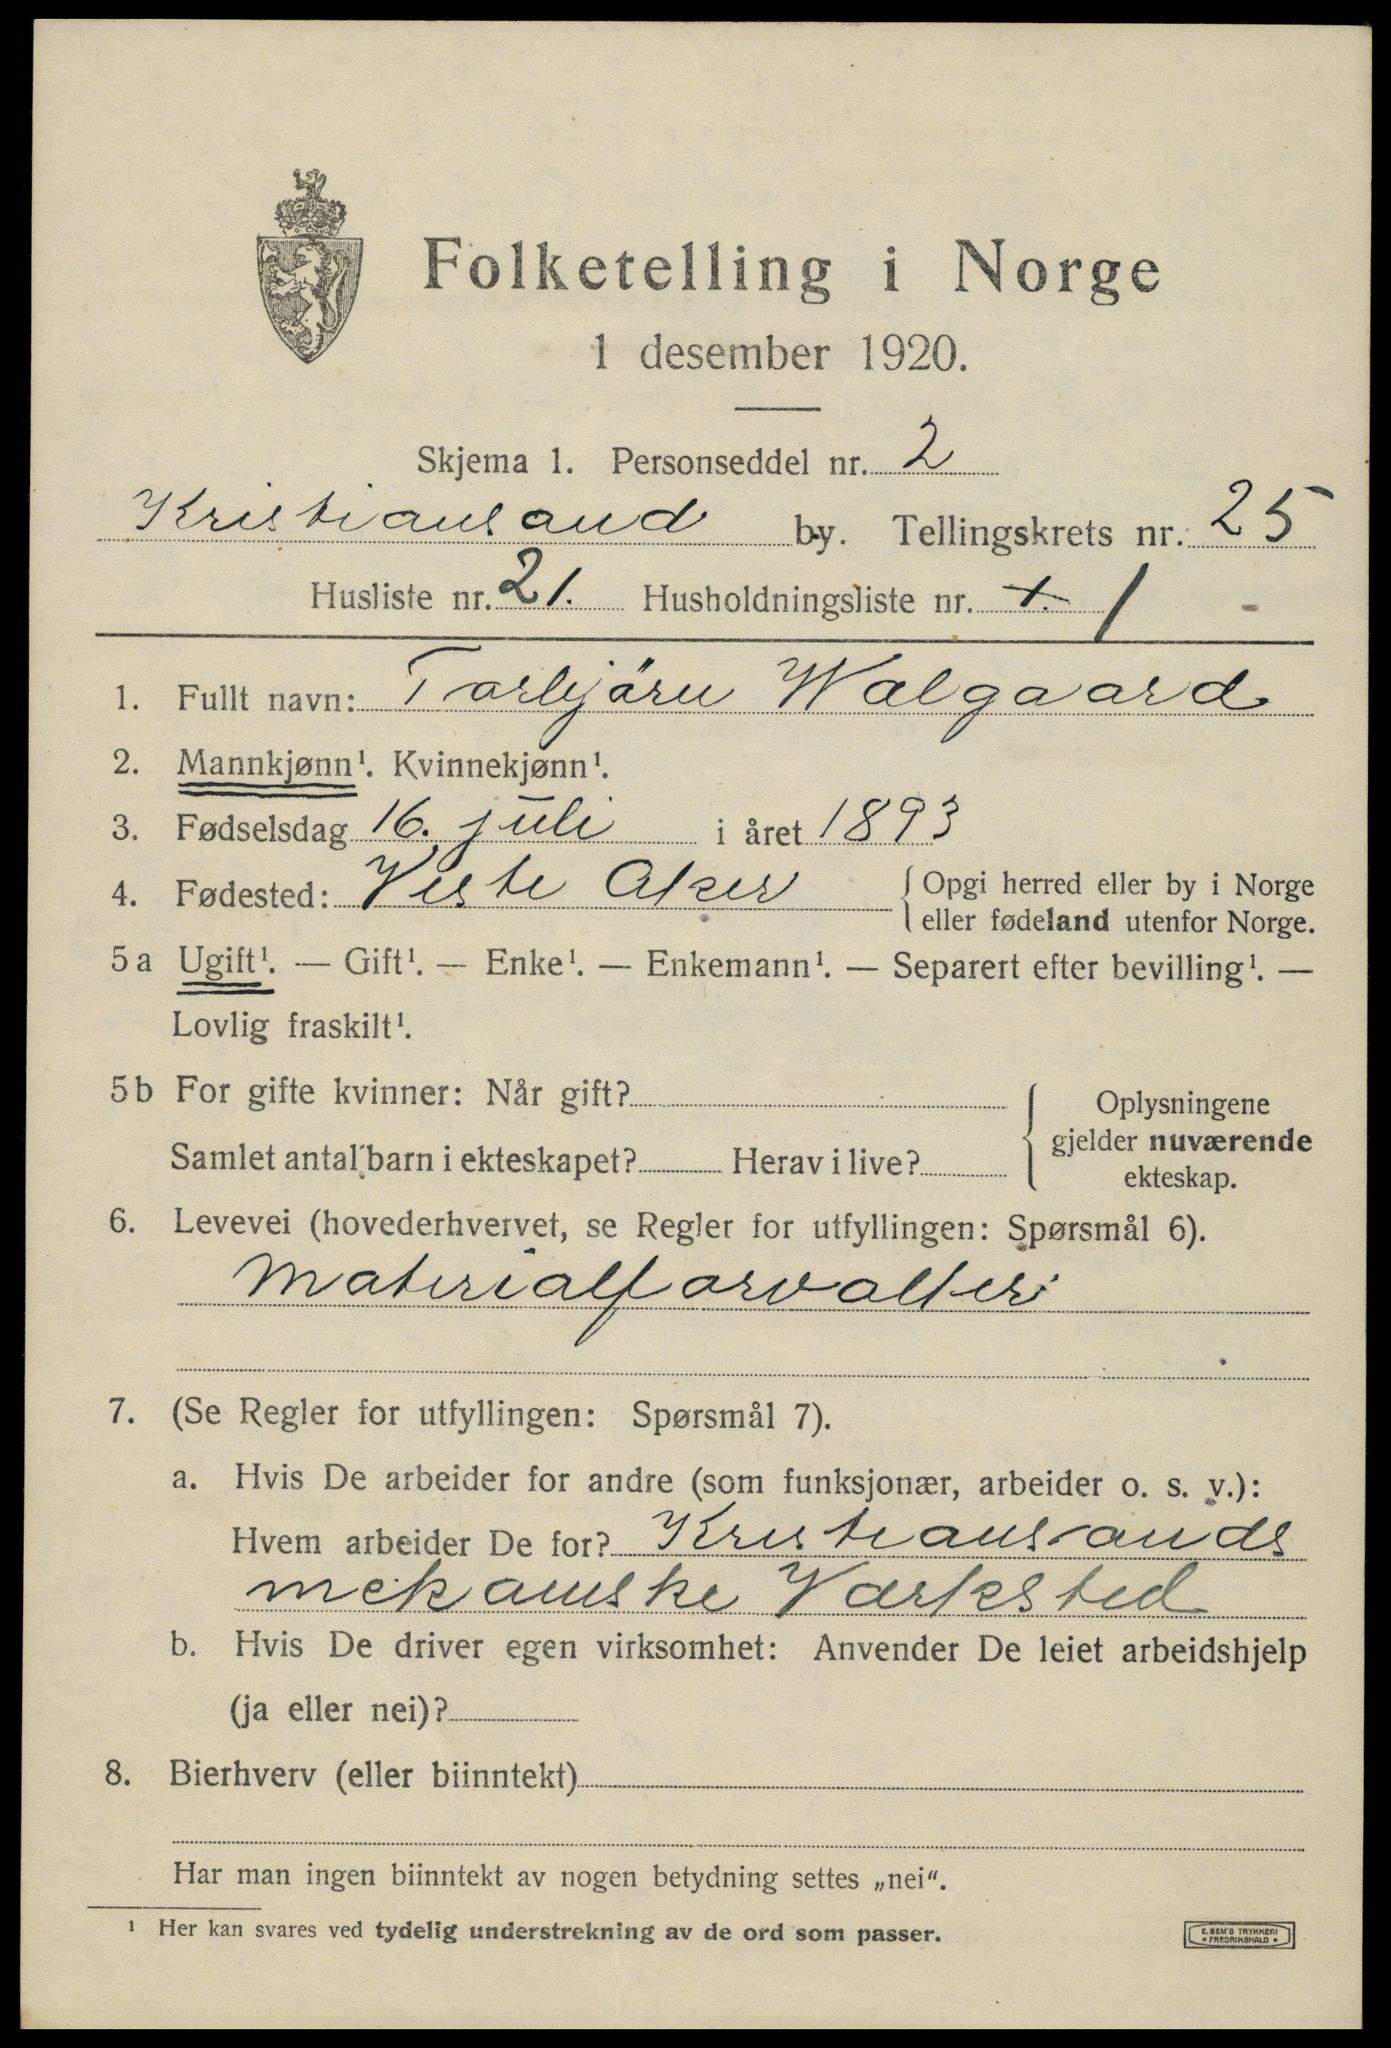 Folketelling i Norge
1 desember 1920.
Skjema 1. Personseddel nr. 2
Kristiansand by. Tellingskrets nr. 25
Husliste nr. 21. Husholdningsliste nr. 1. 1
1. Fullt navn: Torbjörn Walgaard
2. Mannkjønn¹. Kvinnekjønn¹.
3. Fødselsdag 16. juli i året 1893
4. Fødested: Vestre Aker { Opgi herred eller by i Norge
eller fødeland utenfor Norge.
5a Ugift¹. — Gift¹. — Enke¹. — Enkemann¹. — Separert efter bevilling¹. —
Lovlig fraskilt¹.
5b For gifte kvinner: Når gift?
Samlet antal barn i ekteskapet? Herav i live?
{ Oplysningene
gjelder nuværende
ekteskap.
6. Levevei (hovederhvervet, se Regler for utfyllingen: Spørsmål 6).
Materialforvalter
7. (Se Regler for utfyllingen: Spørsmål 7).
a. Hvis De arbeider for andre (som funksjonær, arbeider o. s. v.):
Hvem arbeider De for? Kristiansands
mekaniske Værksted
b. Hvis De driver egen virksomhet: Anvender De leiet arbeidshjelp
(ja eller nei)?
8. Bierhverv (eller biinntekt)
Har man ingen biinntekt av nogen betydning settes „nei“.
¹ Her kan svares ved tydelig understrekning av de ord som passer.
E. SEM'S TRYKKERI
* FREDRIKSHALD *